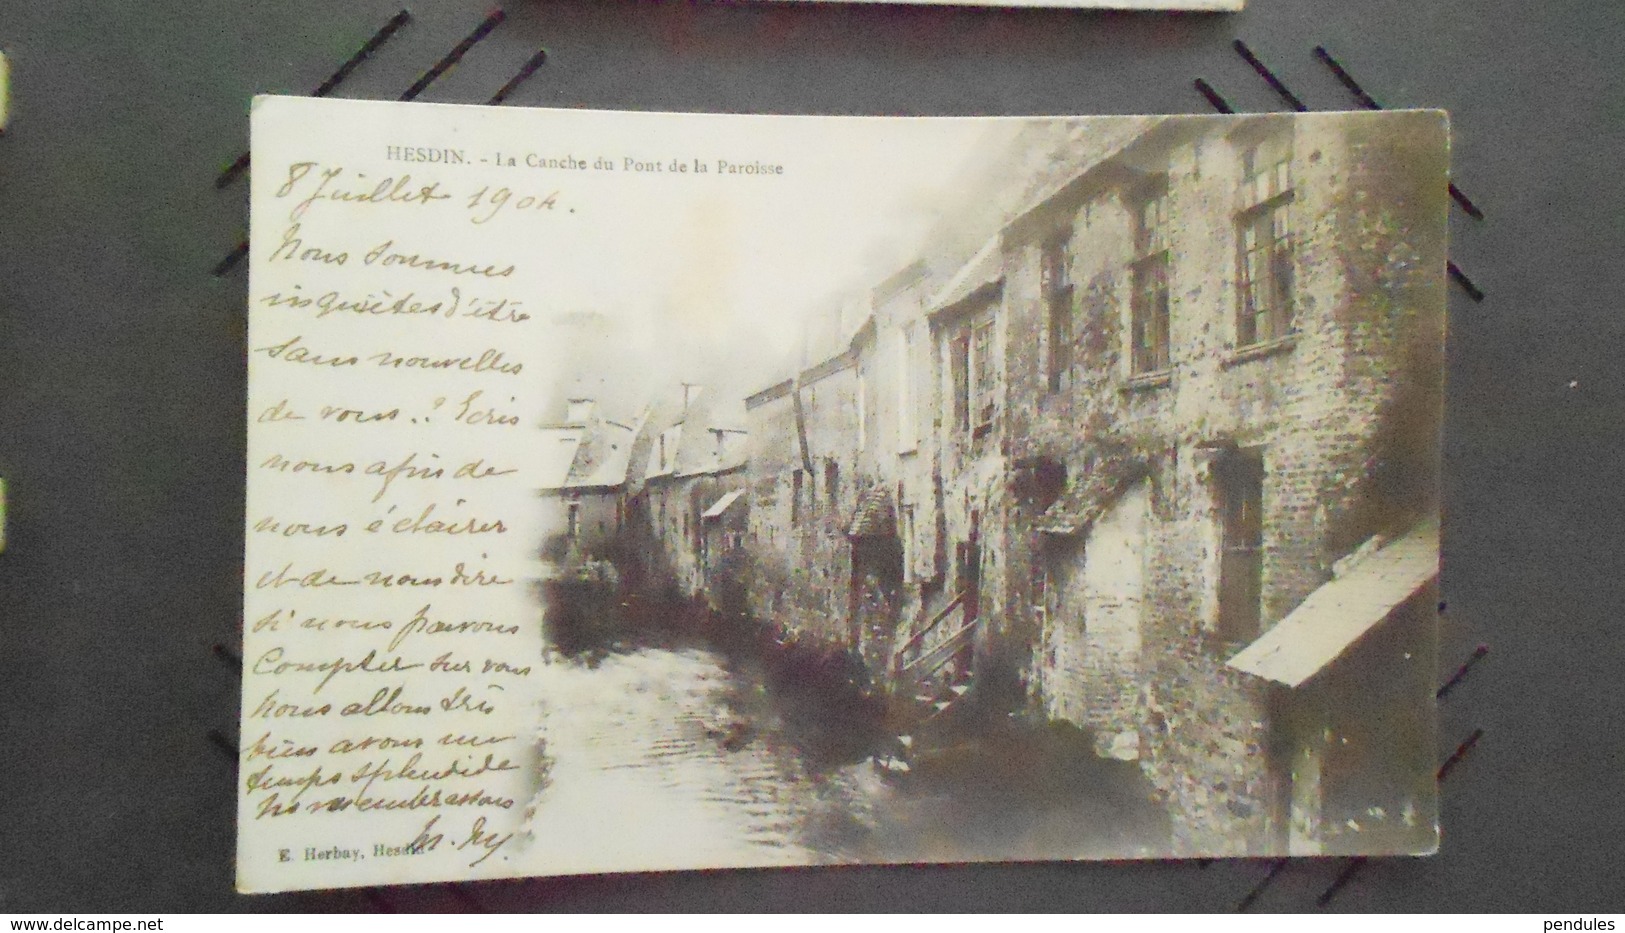 HESDIN. - La Canche du Pont de la Paroisse
8 Juillet 1904.
Nous sommes
inquiètes d'être
sans nouvelles
de vous.? Ecris
nous afin de
nous éclairer
et de nous dire
si nous pouvons
Compter sur vous
Nous allons très
bien avons un
temps splendide
Ns vs embrassons
E. Herbay, Hesdin
www.delcampe.net
pendules